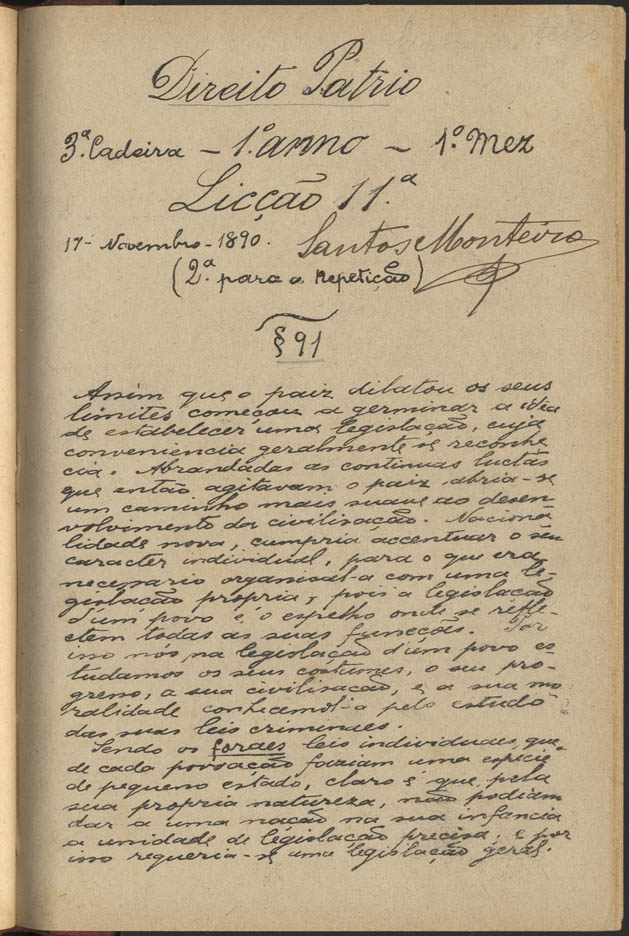 Direito Patrio
3.ª Cadeira - 1.º anno - 1.º Mez
Licção 11.ª
17 - Novembro - 1890. Santos Monteiro
(2.ª para a Repetição)
§ 91
Assim que o paiz dilatou os seus
limites começou a germinar a idea
de estabelecer uma legislação, cuja
conveniencia geralmente se reconhe
cia. Abrandadas as continuas luctas
que então agitavam o paiz abria-se
um caminho mais suave ao desen
volvimento da civilisação. Naciona
lidade nova, cumpria accentuar o seu
caracter individual, para o que era
necessario organisal-a com uma le-
gislação propria, pois a legislação
d'um povo é o espelho onde se refle-
ctem todas as suas funcções. Por
isso nós na legislação d'um povo es-
tudamos os seus costumes, o seu pro-
gresso, a sua civilisação, e a sua mo
ralidade conhecemol-a pelo estudo
das suas leis criminaes.
Sendo os foraes leis individuaes, que
de cada povoação faziam uma especie
de pequeno estado, claro é que, pela
sua propria natureza, não podiam
dar a uma nação na sua infancia
a unidade de legislação precisa, e por
isso requeria-se uma legislação geral.